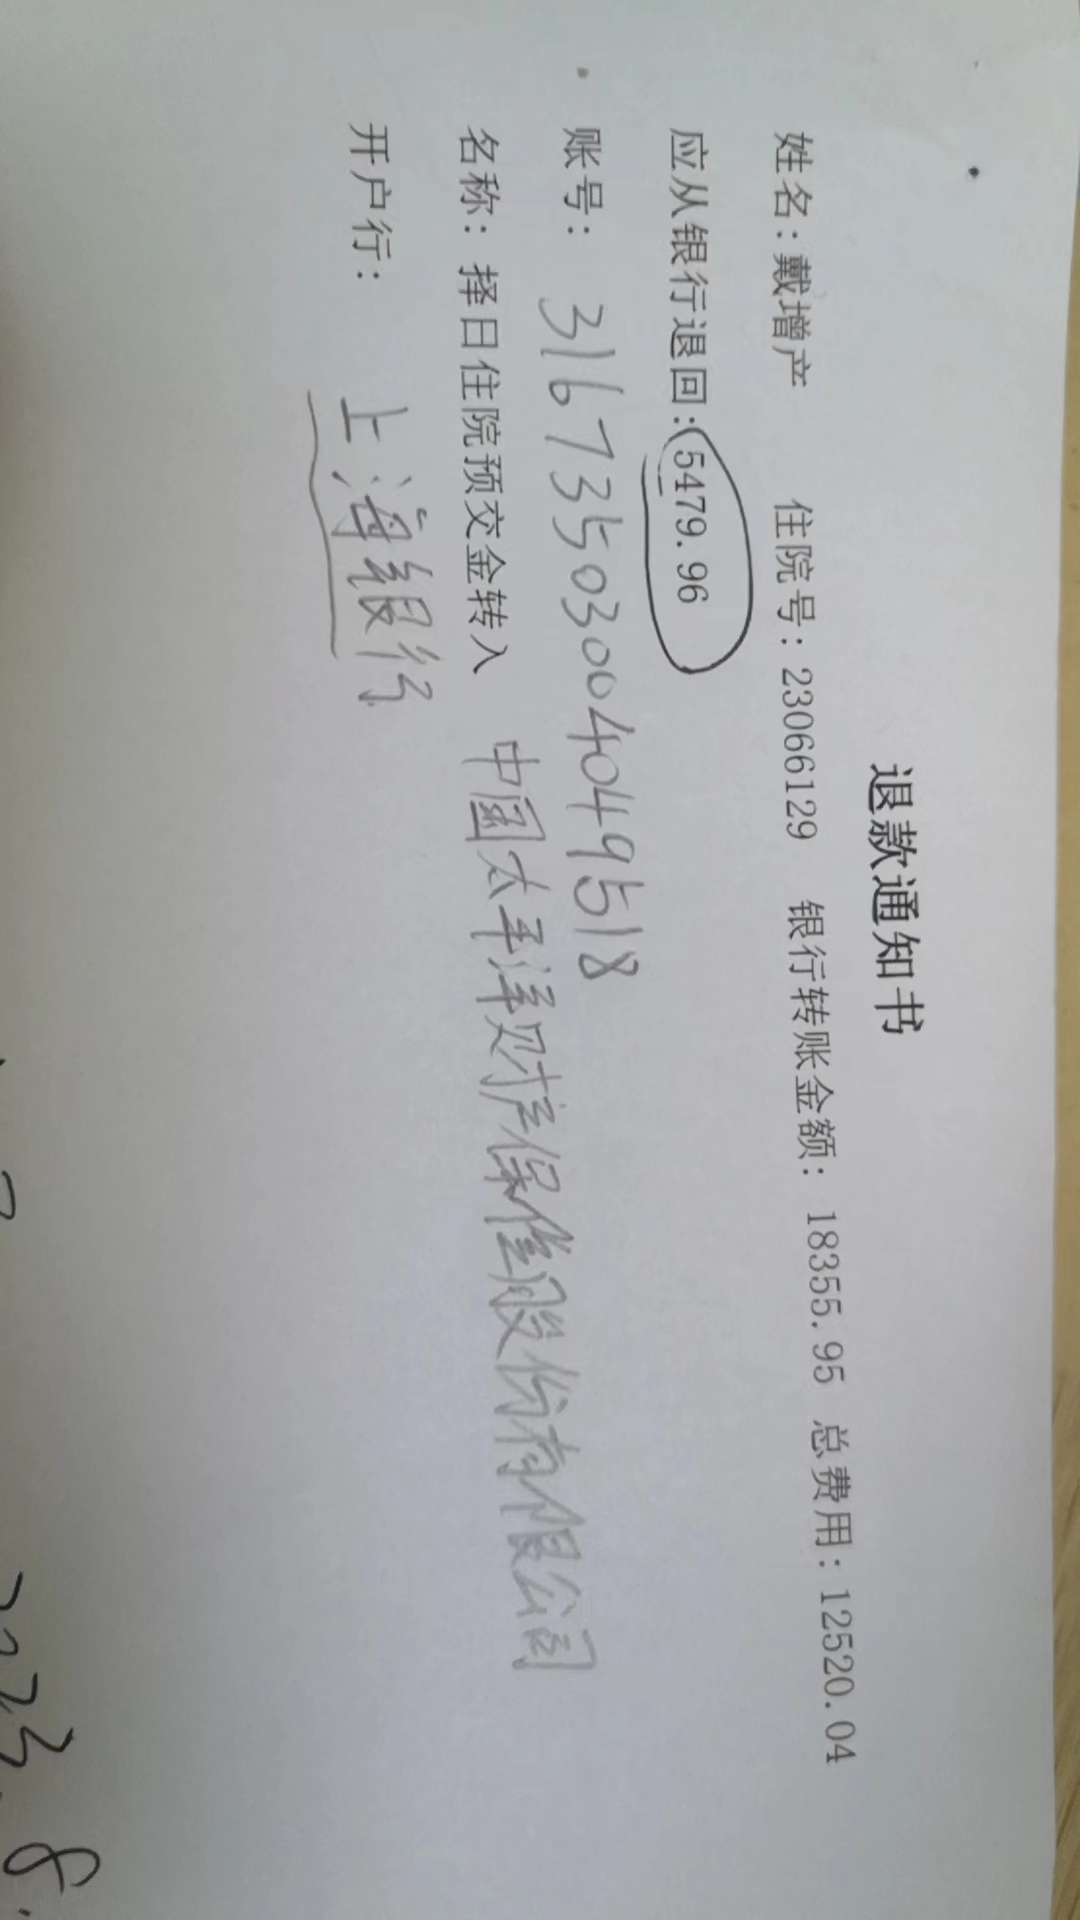 退款通知书
姓名：戴增产 住院号：23066129 银行转账金额：18355.95 总费用：12520.04
应从银行退回：5479.96
账号： 31673503004049518
名称：择日住院预交金转入 中国太平洋财产保险股份有限公司
开户行： 上海银行